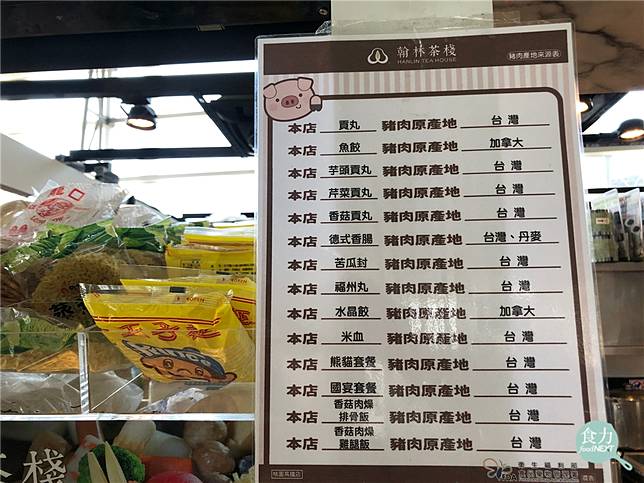 翰林茶棧
HANLIN TEA HOUSE
豬肉產地來源表
本店 貢丸 豬肉原產地 台灣
本店 魚餃 豬肉原產地 加拿大
本店 芋頭貢丸 豬肉原產地 台灣
本店 芹菜貢丸 豬肉原產地 台灣
本店 香菇貢丸 豬肉原產地 台灣
本店 德式香腸 豬肉原產地 台灣、丹麥
本店 苦瓜封 豬肉原產地 台灣
本店 福州丸 豬肉原產地 台灣
本店 水晶餃 豬肉原產地 加拿大
本店 米血 豬肉原產地 台灣
本店 熊貓套餐 豬肉原產地 台灣
本店 國宴套餐 豬肉原產地 台灣
本店 香菇肉燥排骨飯 豬肉原產地 台灣
本店 香菇肉燥雞腿飯 豬肉原產地 台灣
桃園高鐵店
衛生福利部
王子麵
OPEN
棧
食力
foodNEXT